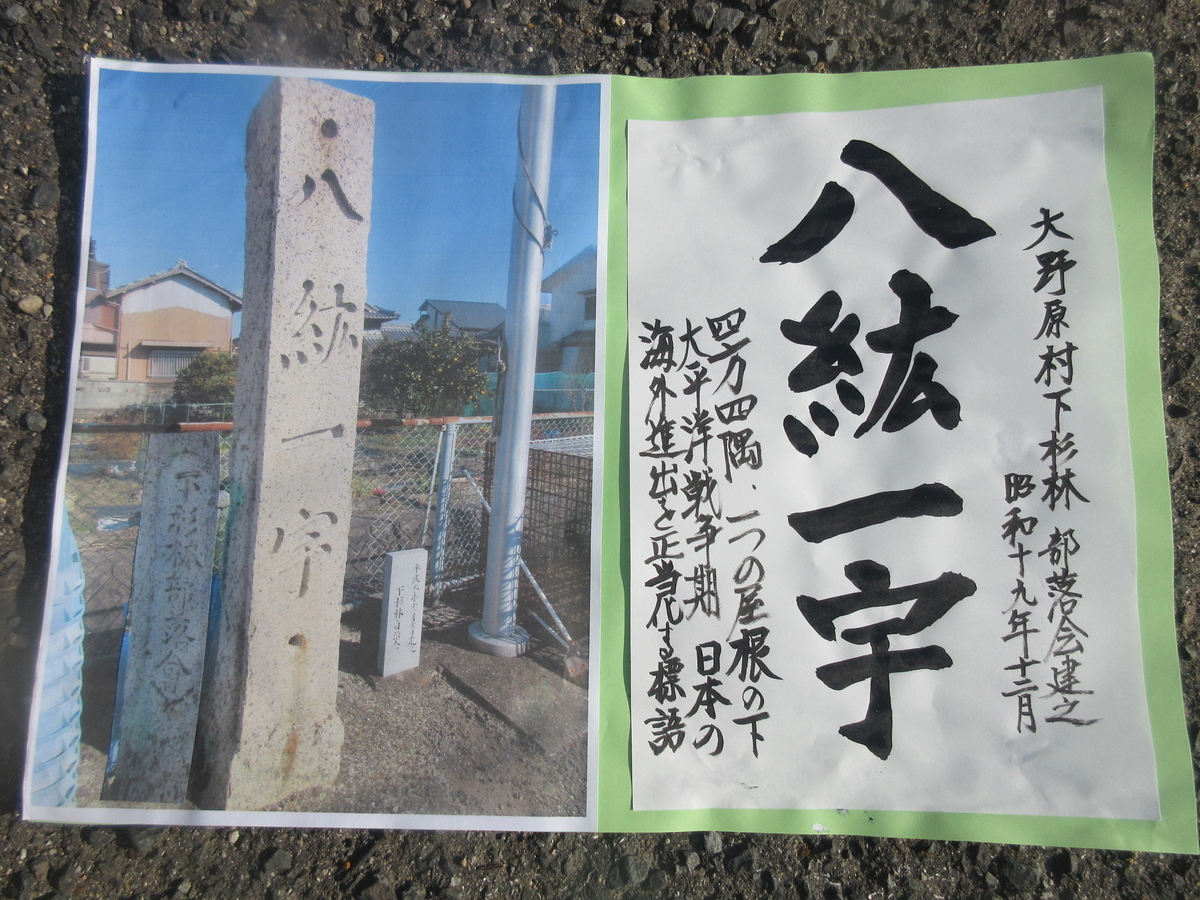 八紘一宇
下杉林部落會
下杉林自治会
大野原村下杉林 部落会建之
昭和十九年十二月
八紘一宇
四方四隅、一つの屋根の下
大平洋戦争期 日本の
海外進出を正当代する標語